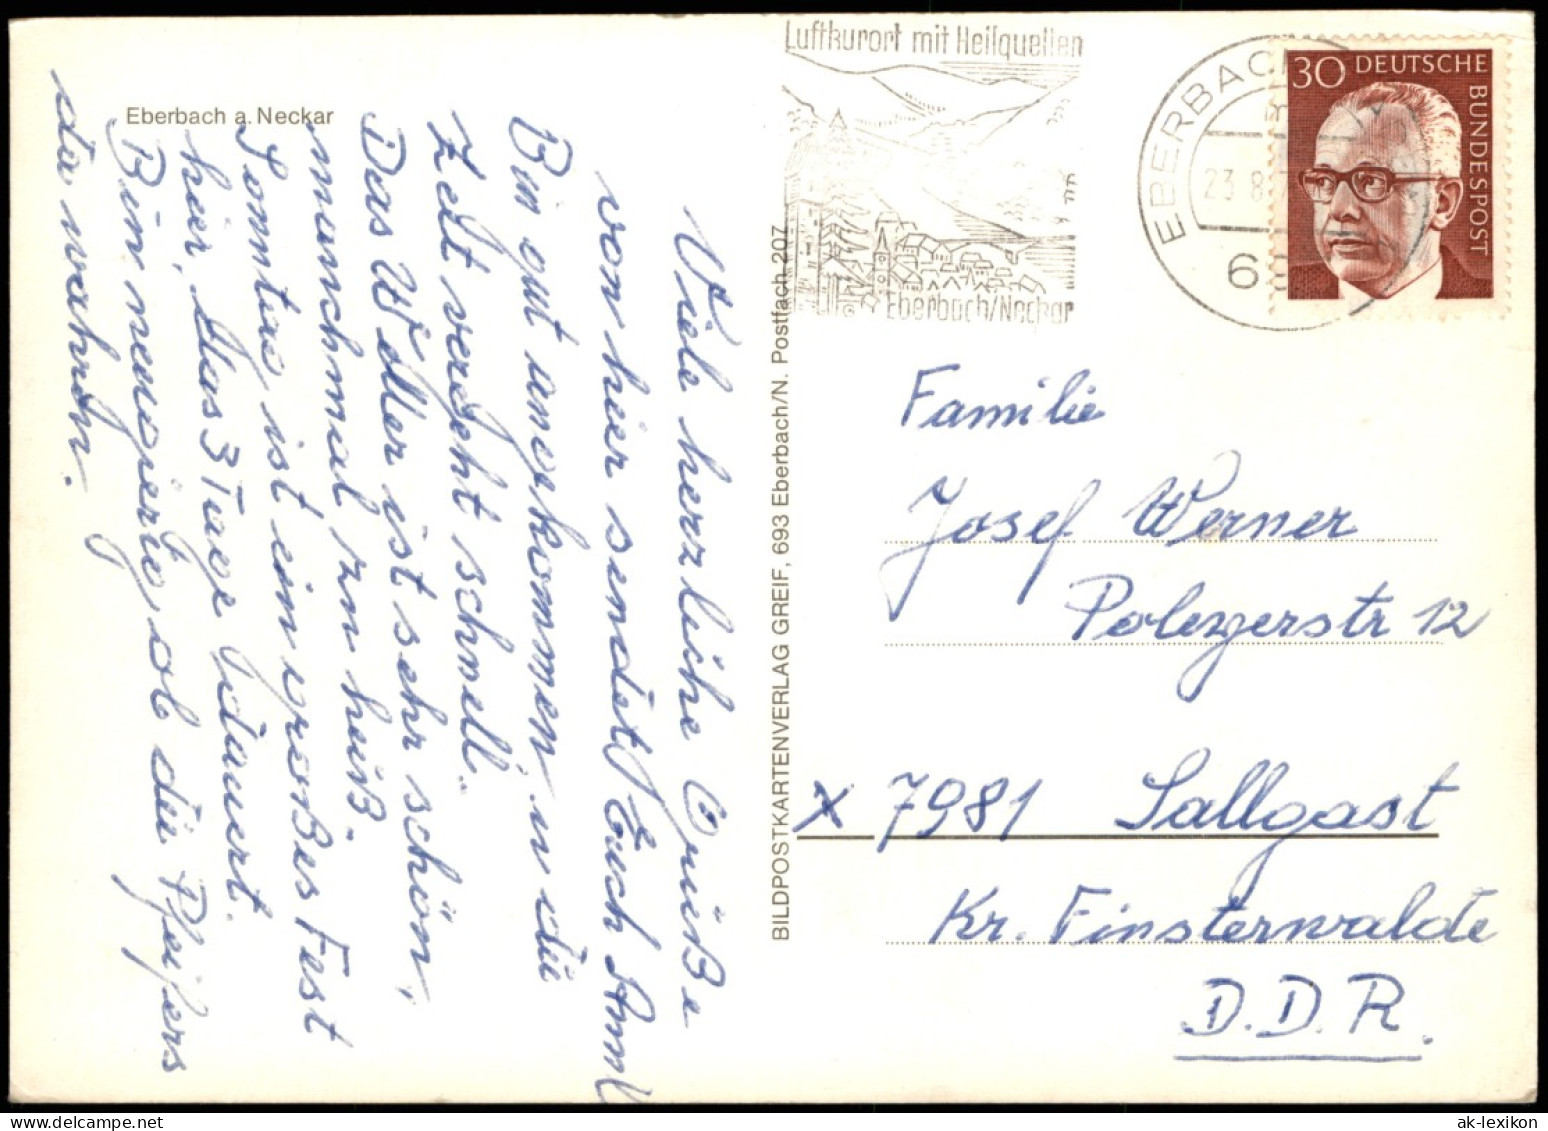 Eberbach a. Neckar
Viele herzliche Grüße
von hier sendet Euch
Bin gut angekommen, u. die
Zeit vergeht schnell.
Das Wetter ist sehr schön,
manchmal zu heiß.
Sonntag ist ein großes Fest
hier, das 3 Tage dauert.
Bin neugierig, ob die Pfeifers
da wahren.
BILDPOSTKARTENVERLAG GREIF, 693 Eberbach/N. Postfach 207
Luftkurort mit Heilquellen
Eberbach/Neckar
EBERBACH
23.8.7
30 DEUTSCHE
BUNDESPOST
Familie
Josef Werner
12
x 7981 Sallgast
Kr. Finsterwalde
D.D.R.
ak-lexikon